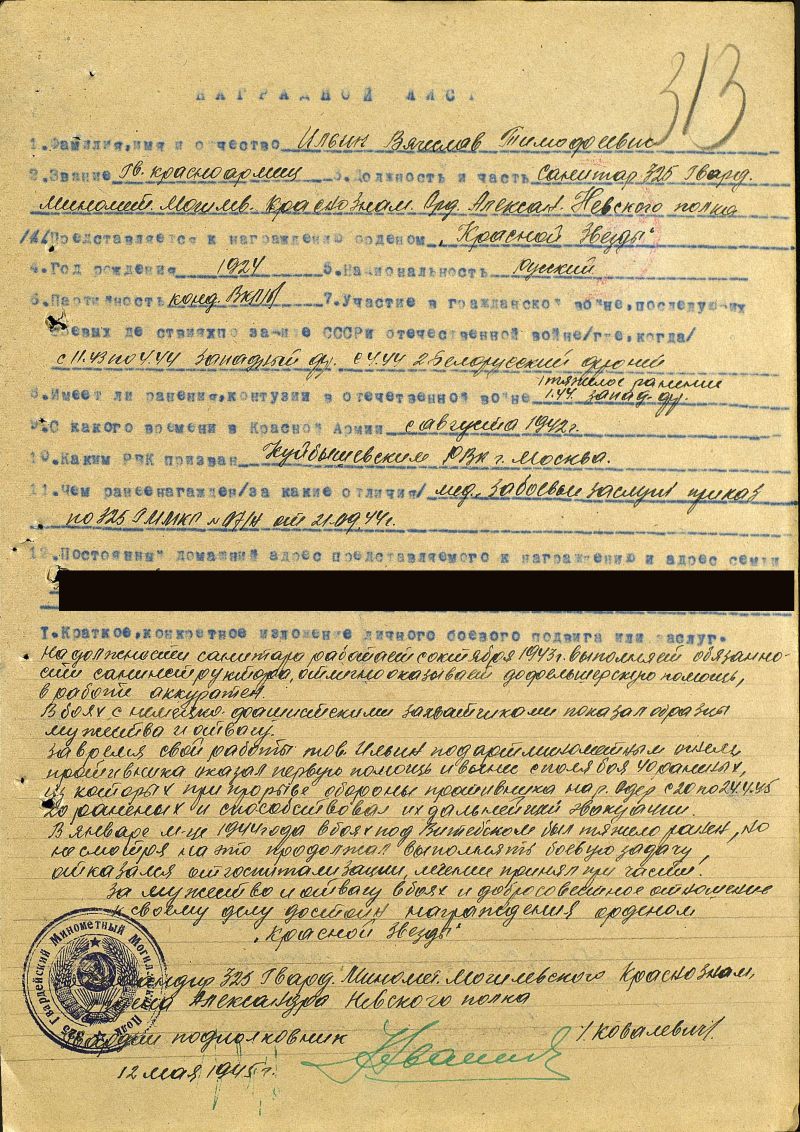 313
НАГРАДНОЙ ЛИСТ
1. Фамилия, имя и отчество Ильин Вячеслав Тимофеевич
2. Звание Гв. красноармеец 3. Должность и часть Санитар 325 Гвард.
миномет. Могилев. Краснознам. Орд. Алексан. Невского полка
Представляется к награждению орденом "Красной Звезды"
4. Год рождения 1924 5. Национальность русский
6. Партийность канд. ВКП/б/ 7. Участие в гражданской войне, последующих
боевых де ствияхпо за ите СССРи отечественной войне/где, когда/
с 11.43 по 4.44 Западный фр. с 4.44 2 Белорусский фронт
тяжелое ранение
8. Имеет ли ранения, контузии в отечественной войне 1.44. запад. фр.
9. С какого времени в Красной Армии с августа 1942 г.
10. Каким РВК призван Куйбышевским РВК г. Москва.
11. Чем ранеенагажден/за какие отличия/ мед. "За боевые заслуги" приказ
по 325 ГММКП №07/н от 21.09.44 г.
12. Постоянный домашний адрес представляемого к награждению и адрес семьи
I. Краткое, конкретное изложение личного боевого подвига или заслуг.
На должности санитара работает с октября 1943 г. выполняет обязанно-
сти санинструктора, отлично оказывает дофельдшерскую помощь,
в работе аккуратен.
В боях с немецко-фашистскими захватчиками показал образцы
мужества и отваги.
За время свой работы тов. Ильин под артминометным огнем
противника оказал первую помощь и вынес с поля боя 40 раненых,
из которых при прорыве обороны противника на р. Одер с 20 по 24.4.45
20 раненых и способствовал их дальнейшей эвакуации.
В январе м-це 1944 года в боях под Витебском был тяжело ранен, но
несмотря на это продолжал выполнять боевую задачу,
отказался от госпитализации, лечение принял при части.
За мужество и отвагу в боях и добросовестное отношение
к своему делу достоин награждения орденом
"Красной Звезды"
Командир 325 Гвард. Миномет. Могилевского Краснознам.
Александра Невского полка
Гвардии подполковник /Ковалевич/.
12 мая 1945 г.
325 Гвардейский Минометный Могил. Полк